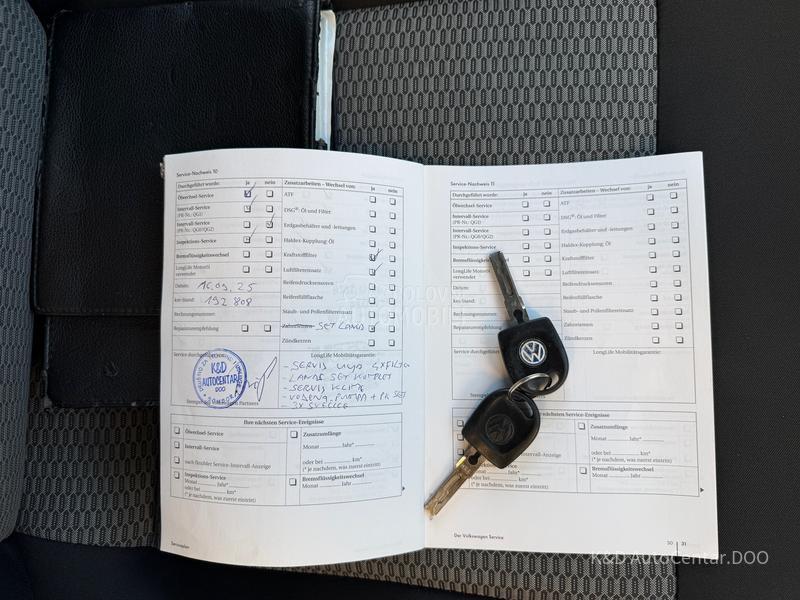 Service-Nachweis 10
Durchgeführt wurde: ja nein
Ölwechsel-Service
Intervall-Service
(PR-Nr.: QG1)
Intervall-Service
(PR-Nr.: QG0/QG2)
Inspektions-Service
Bremsflüssigkeitswechsel
LongLife Motoröl
verwendet
Datum: 16.09.25
km-Stand: 192 808
Rechnungsnummer:
Reparaturempfehlung
Zusatzarbeiten – Wechsel von: ja nein
ATF
DSG®: Öl und Filter
Erdgasbehälter und -leitungen
Haldex-Kupplung: Öl
Kraftstofffilter
Luftfiltereinsatz
Reifendrucksensoren
Reifenfüllflasche
Staub- und Pollenfiltereinsatz
Zahnriemen SET LANAC
Zündkerzen
Service durchgeführt von:
K&D
AUTOCENTAR
DOO
LongLife Mobilitätsgarantie:
- SERVIS ULJA
- LANAC SET KOMPLET
- SERVIS KLIME
- VODENA PUMPA + PK SET
- 3X SVECICE
Ihre nächsten Service-Ereignisse
Ölwechsel-Service
Intervall-Service
nach flexibler Service-Intervall-Anzeige
Inspektions-Service
Monat Jahr*
oder bei km*
(* je nachdem, was zuerst eintritt)
Zusatzumfänge
Monat Jahr*
oder bei km*
(* je nachdem, was zuerst eintritt)
Bremsflüssigkeitswechsel
Monat Jahr
Serviceplan
Service-Nachweis 11
Durchgeführt wurde: ja nein
Ölwechsel-Service
Intervall-Service
(PR-Nr.: QG1)
Intervall-Service
(PR-Nr.: QG0/QG2)
Inspektions-Service
LongLife Motoröl
verwendet
Datum:
km-Stand:
Rechnungsnummer:
Reparaturempfehlung
Zusatzarbeiten – Wechsel von: ja nein
ATF
DSG®: Öl und Filter
Erdgasbehälter und -leitungen
Haldex-Kupplung: Öl
Kraftstofffilter
Luftfiltereinsatz
Reifendrucksensoren
Reifenfüllflasche
Staub- und Pollenfiltereinsatz
Zahnriemen
Zündkerzen
Service durchgeführt
LongLife Mobilitätsgarantie:
nächsten Service-Ereignisse
Zusatzumfänge
Monat Jahr*
oder bei km*
(* je nachdem, was zuerst eintritt)
Bremsflüssigkeitswechsel
Monat Jahr
Der Volkswagen Service
30 31
K&D AutoCentar.DOO